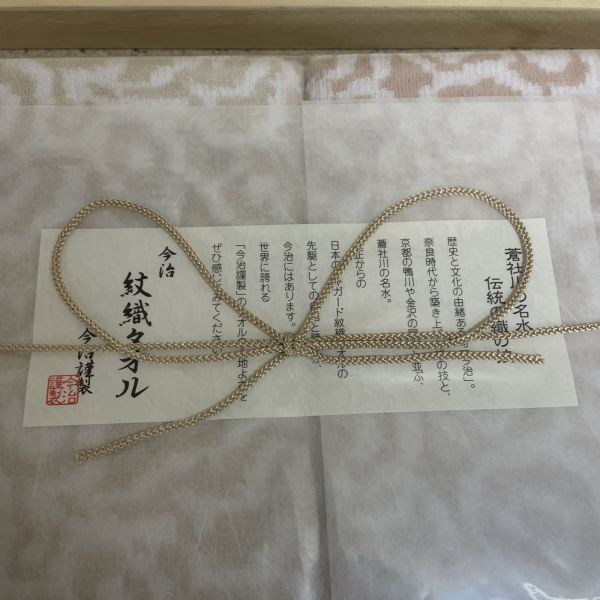 蒼社川の名水
伝統の織の
歴史と文化の由緒ある 今治」。
奈良時代から築き上 の技と、
京都の鴨川や金沢の 並ぶ、
蒼社川の名水。
正からの
日本の ャガード紋織 オルの
先駆としての
今治にはあります。
世界に誇れる
「今治謹製」の オル 地よ を
ぜひ感 みてください
今治
紋織タオル
今治謹製
今治謹製